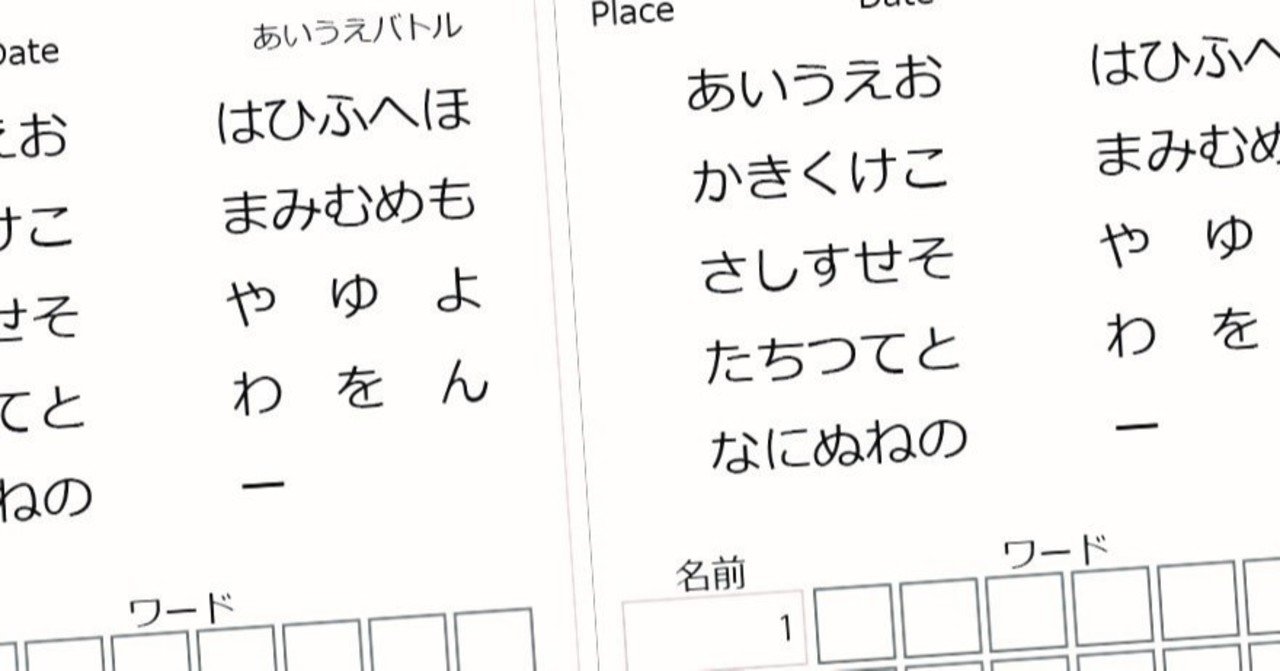 Date
あいうえバトル
えお
はひふへほ
けこ
まみむめも
せそ
や ゆ よ
てと
わ を ん
ねの
ー
ワード
Place
Date
あいうえお
はひふへ
かきくけこ
まみむめ
さしすせそ
や ゆ
たちつてと
わ を
なにぬねの
ー
名前
ワード
1